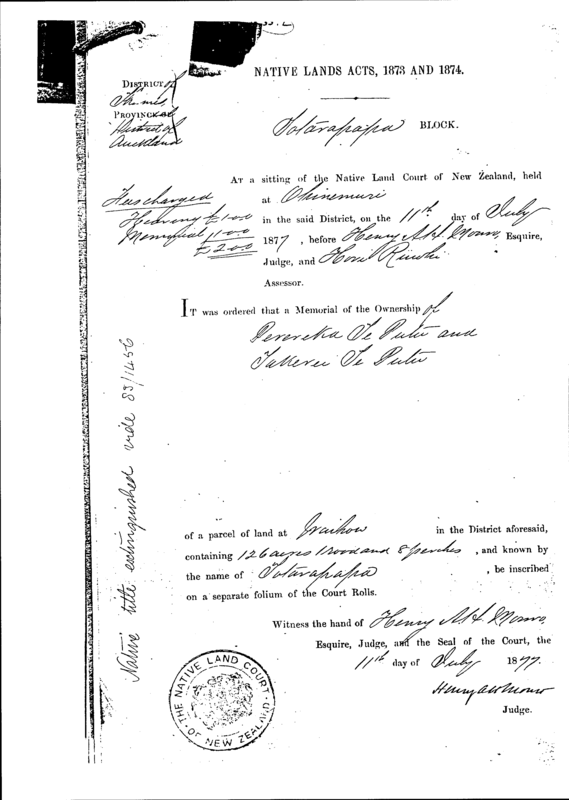 NATIVE LANDS ACTS, 1873 AND 1874.
DISTRICT of
Thames
PROVINCIAL
District of
Auckland
Totarapapa BLOCK.
AT a sitting of the Native Land Court of New Zealand, held
at Ohinemuri
in the said District, on the 11th day of July
1877, before Henry A H Monro, Esquire,
Judge, and
Assessor.
Fees charged
Hearing £1.0.0
Memorial 1.0.0
£2.0.0
IT was ordered that a Memorial of the Ownership of
Te Putu and
Te Putu
of a parcel of land at Waihou in the District aforesaid,
containing 126 acres 1 rood and 8 perches, and known by
the name of Totarapapa, be inscribed
on a separate folium of the Court Rolls.
Witness the hand of Henry A H Monro
Esquire, Judge, and the Seal of the Court, the
11th day of July 1877.
Henry A H Monro
Judge.
THE NATIVE LAND COURT
OF NEW ZEALAND
Native title extinguished vide 83/1456